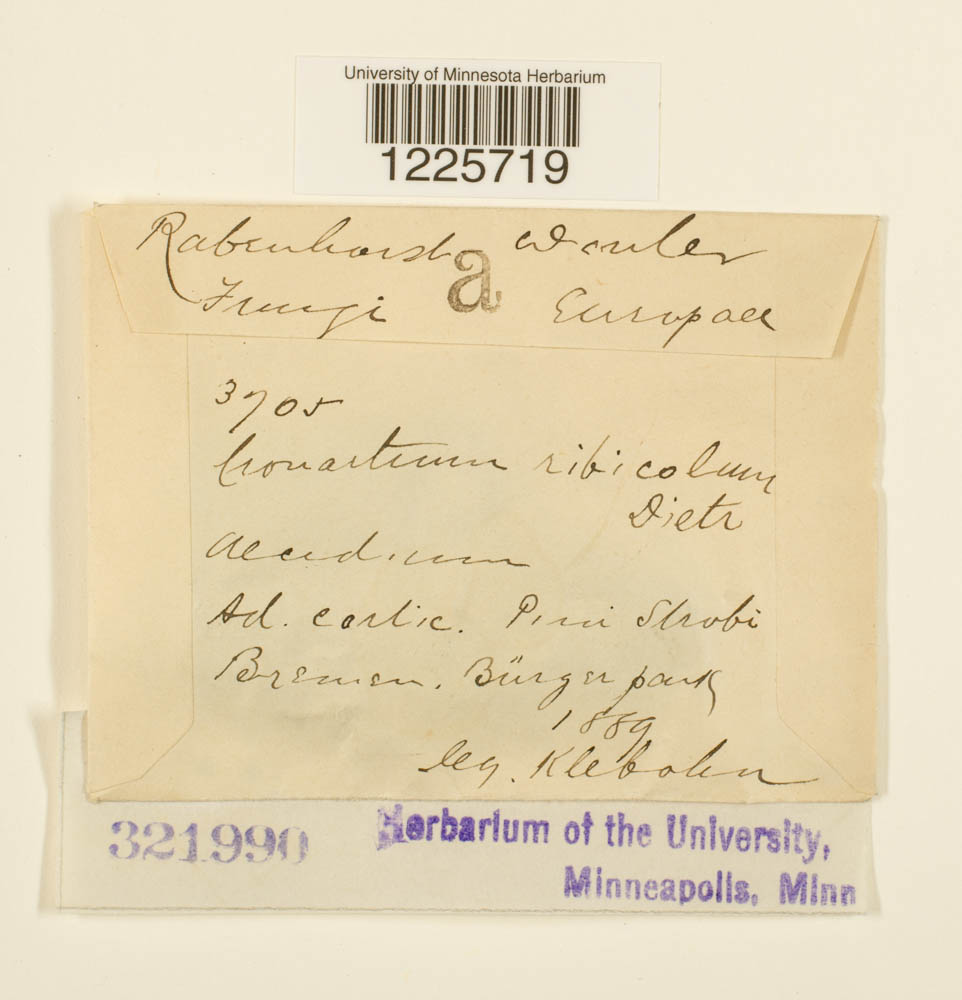 University of Minnesota Herbarium
1225719
Rabenhorst Winter
a
Fungi Europaei
3705
Cronartium ribicolum
Dietr
Aecidium
Ad. cortic. Pini Strobi
Bremen. Bürgerpark
1889
leg. Klebahn
321990 Herbarium of the University,
Minneapolis, Minn